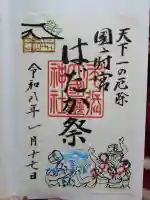 天下一の厄祭
国府宮
はだか祭
令和八年一月十七日